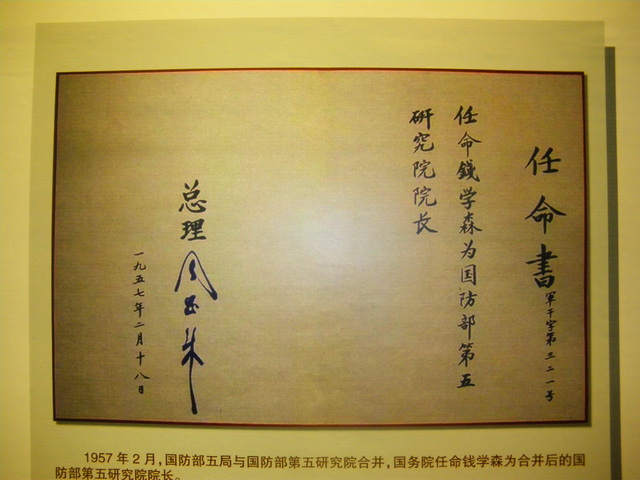 任命書
軍干字第三二一号
任命錢学森为国防部第五
研究院院长
总理 周恩来
一九五七年二月十八日
1957年2月,国防部五局与国防部第五研究院合并,国务院任命钱学森为合并后的国
防部第五研究院院长。